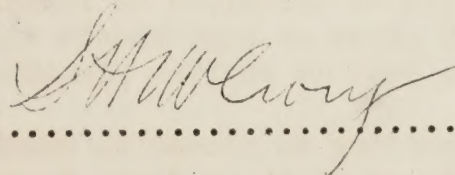 S H McCrory